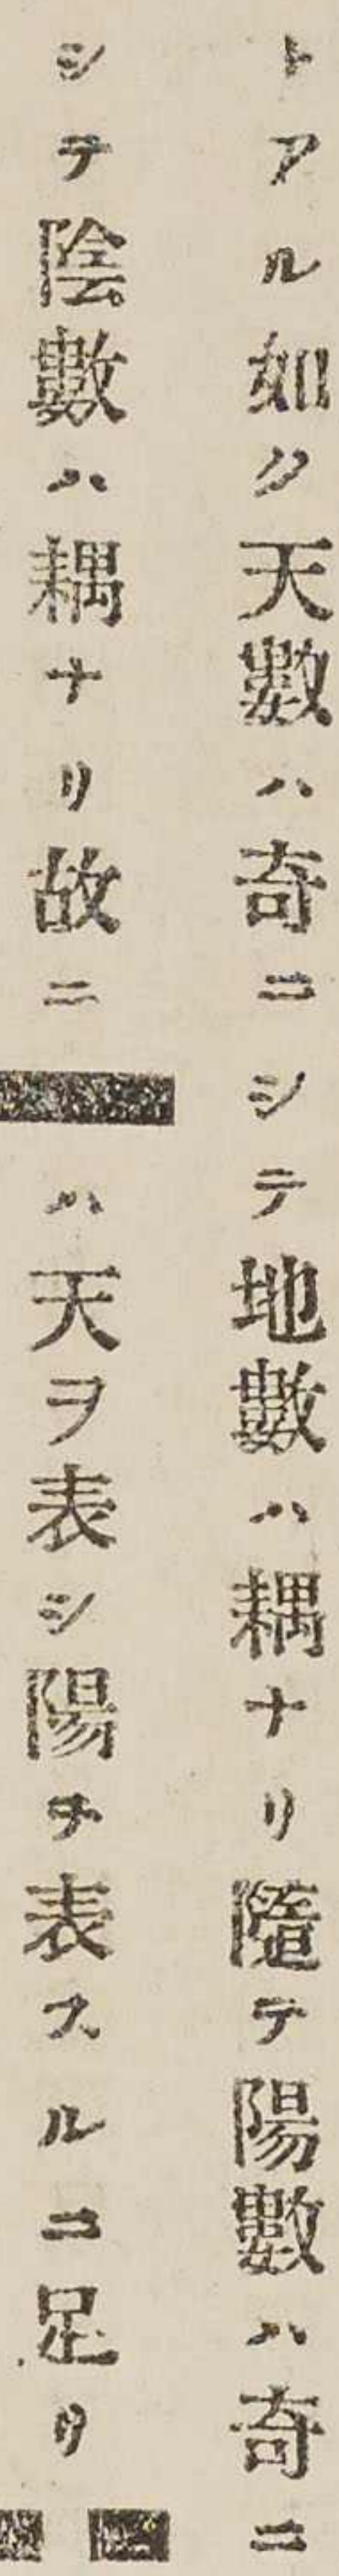 トアル如ク天數ハ奇ニシテ地數ハ耦ナリ隨テ陽數ハ奇ニ
シテ陰數ハ耦ナリ故ニ⚊ハ天ヲ表シ陽チ表スルニ足リ⚋